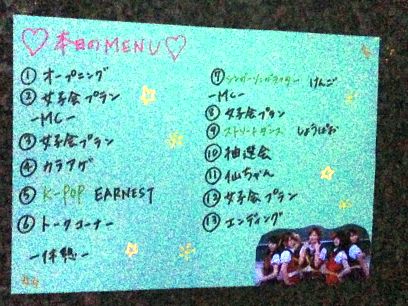 ♡本日のMENU♡
① オープニング
② 女子会プラン
-MC-
③ 女子会プラン
④ カラアゲ
⑤ K-POP EARNEST
⑥ トークコーナー
-休憩-
⑦ シンガーソングライター けんご
-MC-
⑧ 女子会プラン
⑨ ストリートダンス しょうぱお
⑩ 抽選会
⑪ 仙ちゃん
⑫ 女子会プラン
⑬ エンディング